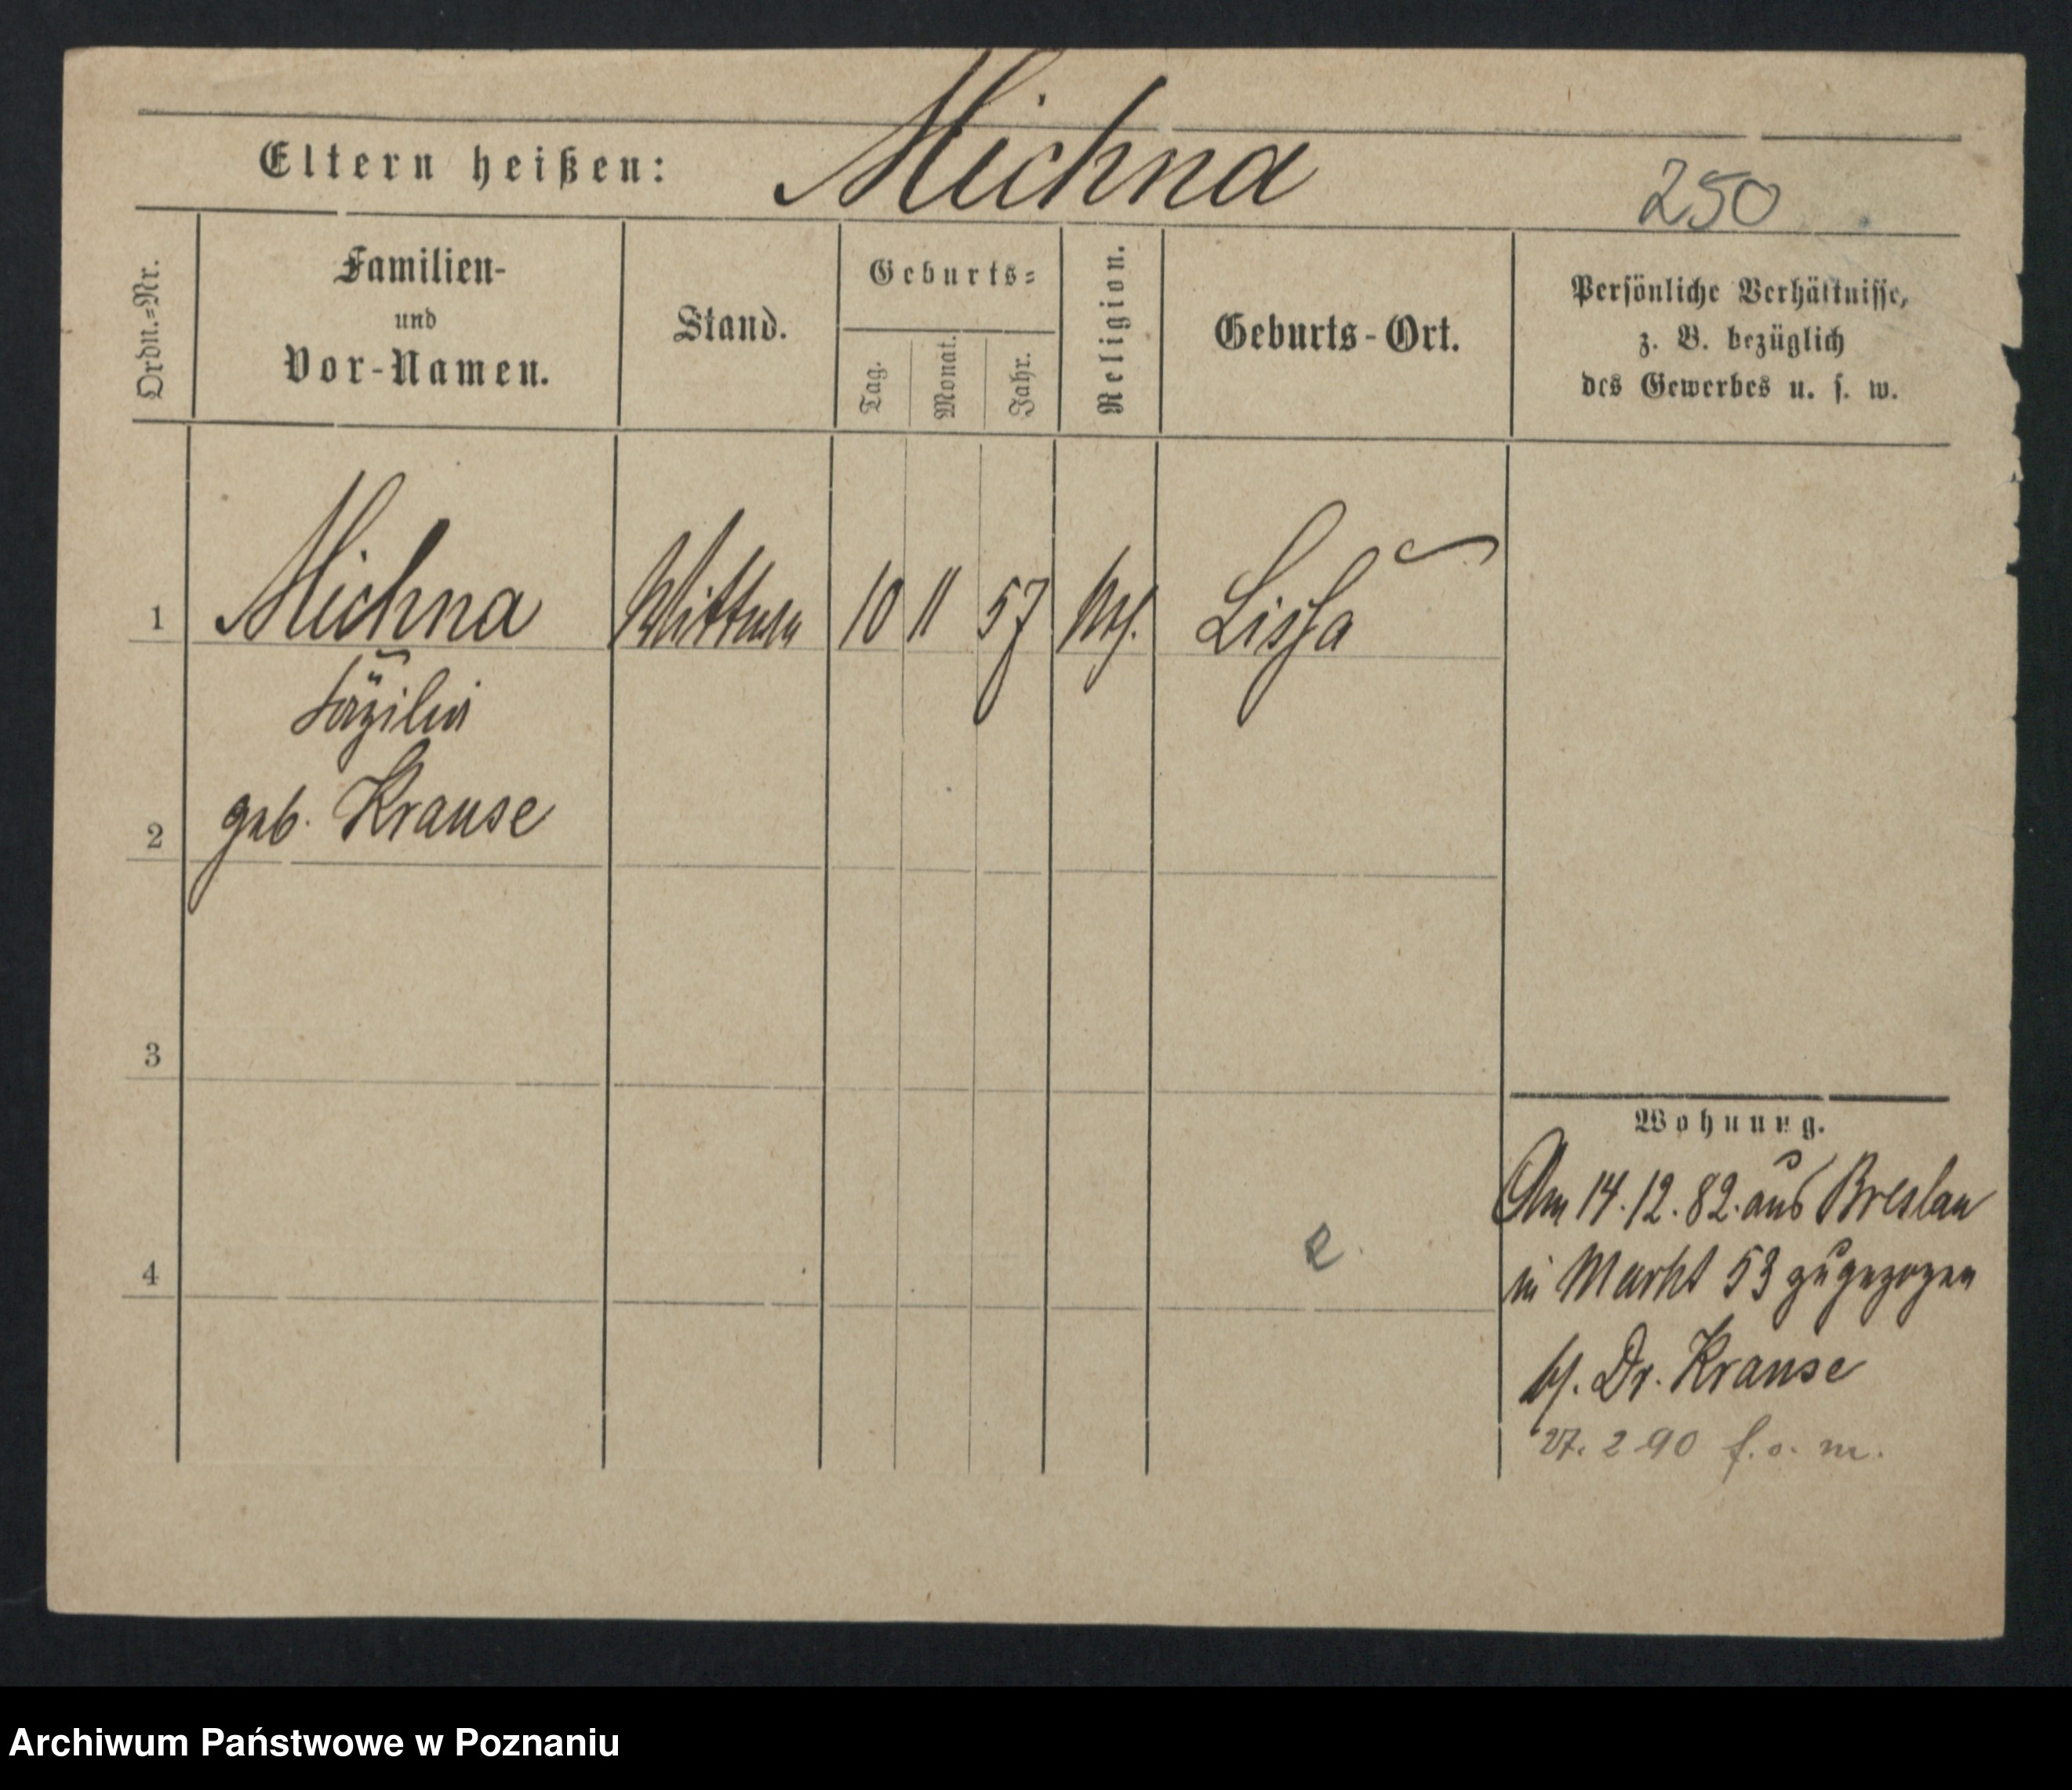 Eltern heißen: Michna
250
Ordn.=Nr.
Familien-
und
Vor-Namen.
Stand.
Geburts=
Tag.
Monat.
Jahr.
Religion.
Geburts-Ort.
Persönliche Verhältnisse,
z. B. bezüglich
des Gewerbes u. s. w.
1 Michna Wittwe 10 11 57 Lissa
Cäzilie
2 geb. Krause
3
4
Wohnung.
Am 14.12.82. aus Breslau
in Markt 53 zugezogen
bei. Dr. Krause
27. 2 90 f. o. m.
Archiwum Państwowe w Poznaniu